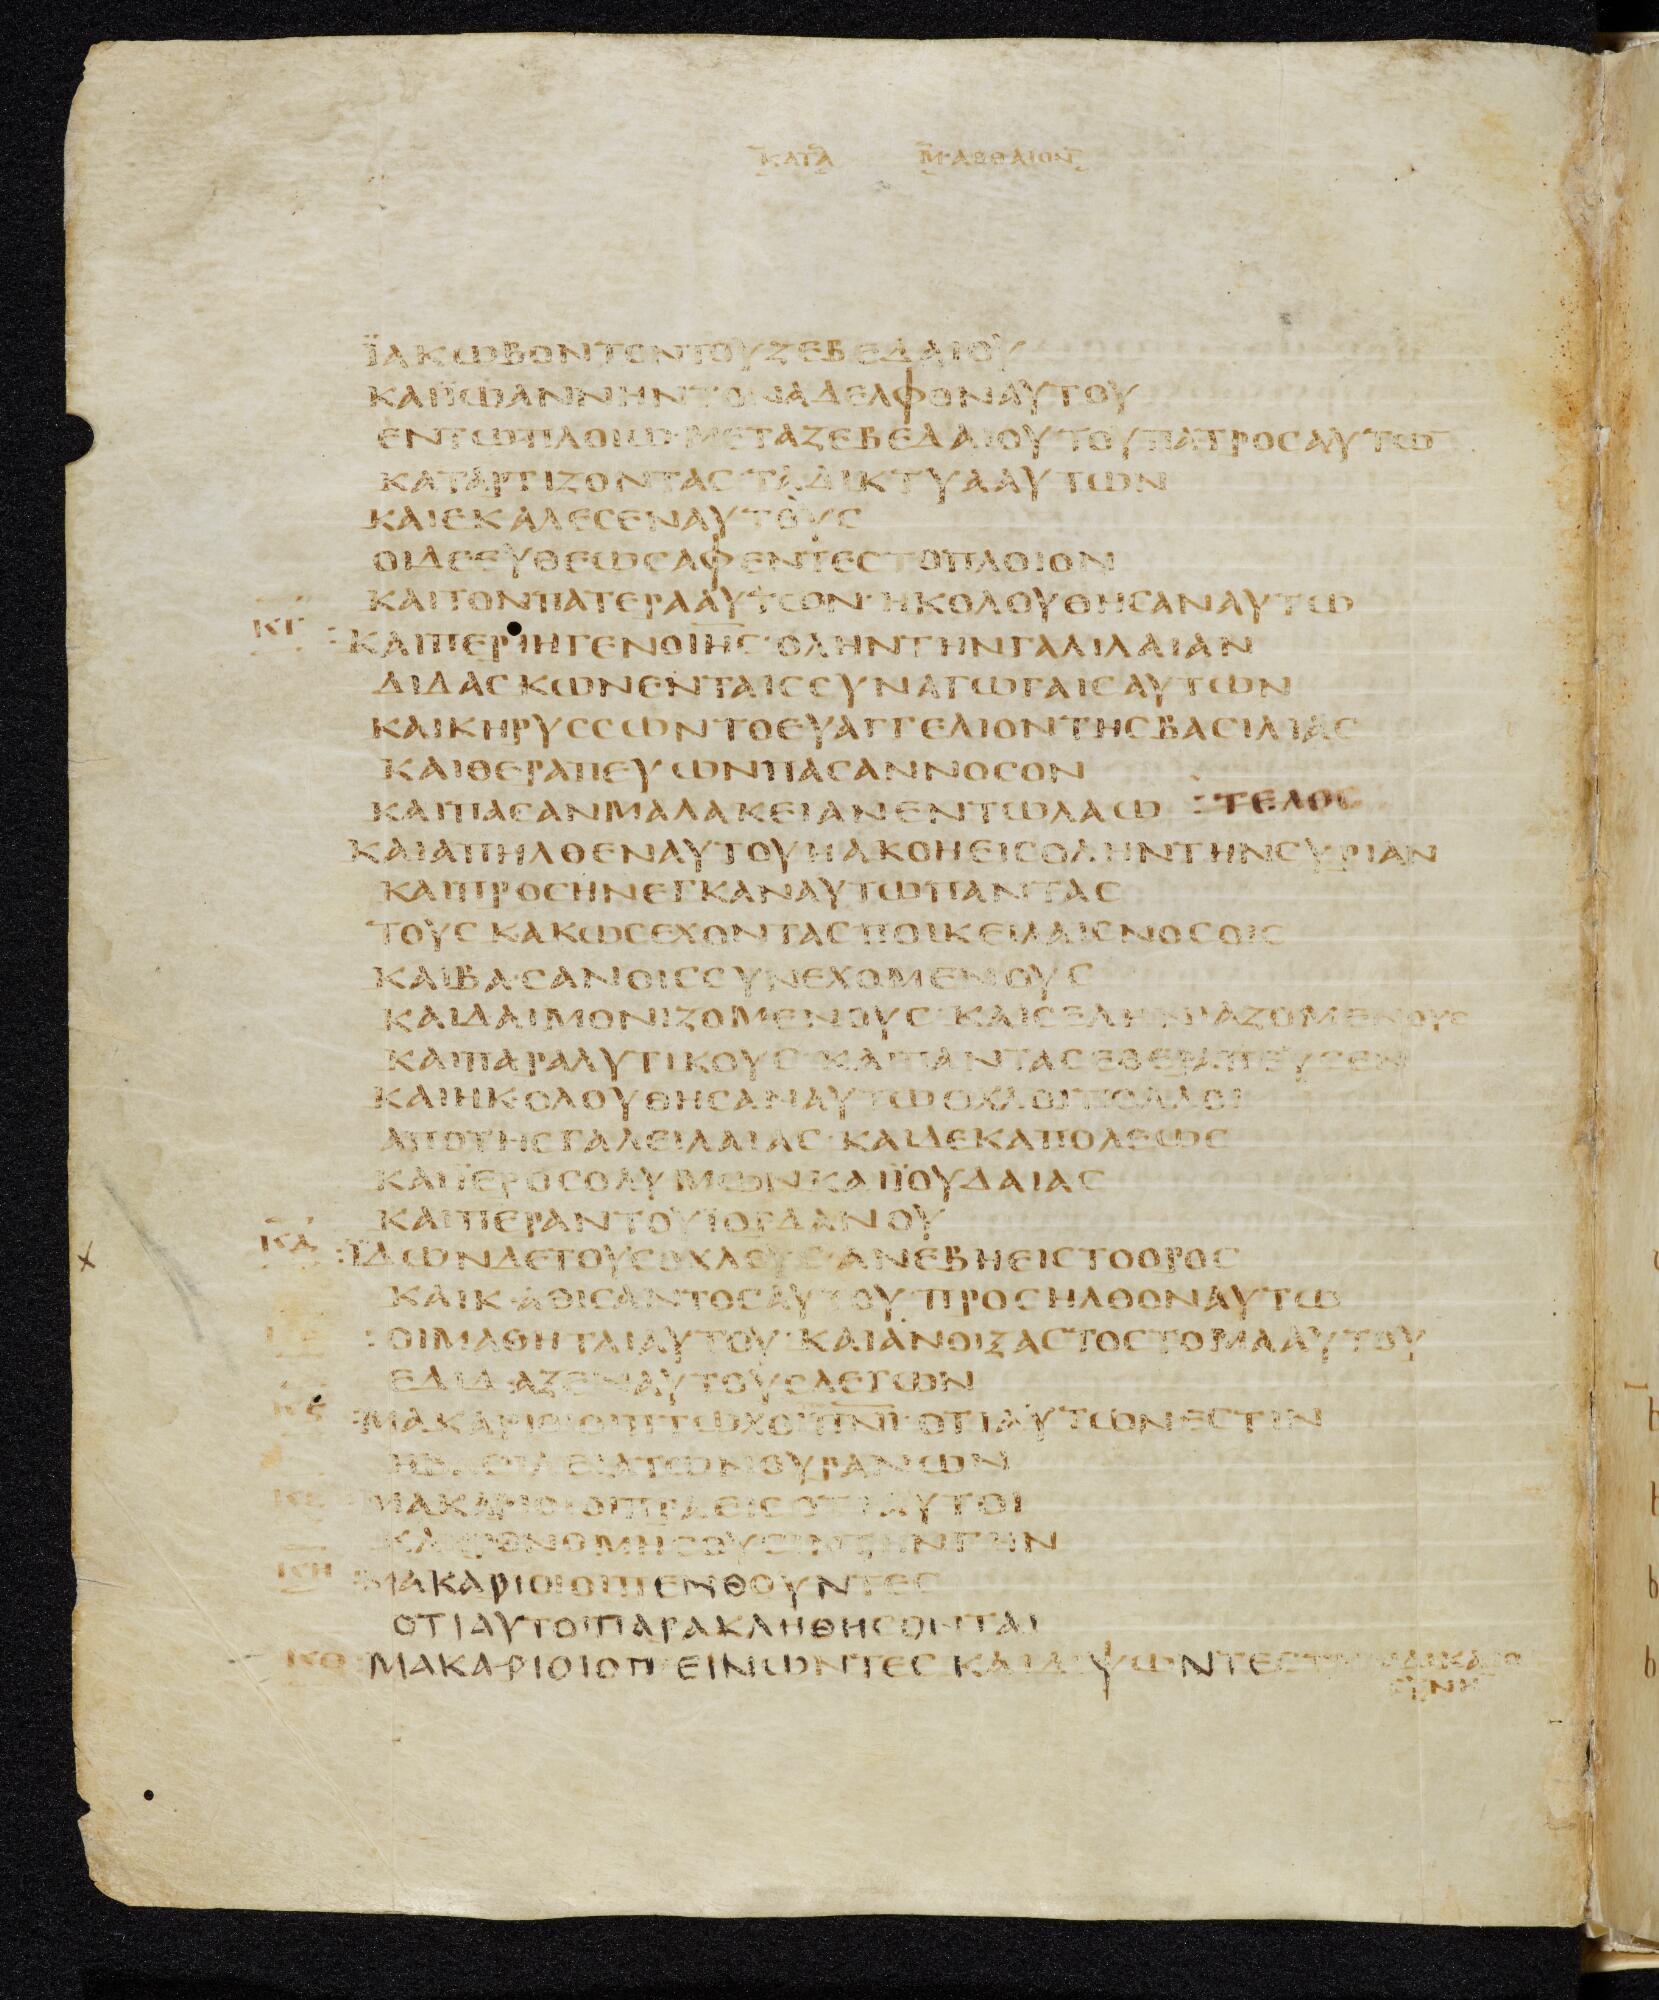 ΚΑΤΑ ΜΑΘΘΑΙΟΝ
ΪΑΚΩΒΟΝΤΟΝΤΟΥΖΕΒΕΔΑΙΟΥ
ΚΑΙΪΩΑΝΝΗΝΤΟΝΑΔΕΛΦΟΝΑΥΤΟΥ
ΕΝΤΩΠΛΟΙΩ·ΜΕΤΑΖΕΒΕΔΑΙΟΥΤΟΥΠΑΤΡΟΣΑΥΤΩ̅
ΚΑΤΑΡΤΙΖΟΝΤΑΣΤΑΔΙΚΤΥΑΑΥΤΩΝ
ΚΑΙΕΚΑΛΕΣΕΝΑΥΤΟΥΣ
ΟΙΔΕΕΥΘΕΩΣΑΦΕΝΤΕΣΤΟΠΛΟΙΟΝ
ΚΑΙΤΟΝΠΑΤΕΡΑΑΥΤΩΝ·ΗΚΟΛΟΥΘΗΣΑΝΑΥΤΩ
ΚΓ :ΚΑΙΠΕΡΙΗΓΕΝΟΙΗΣ·ΟΛΗΝΤΗΝΓΑΛΙΛΑΙΑΝ
ΔΙΔΑΣΚΩΝΕΝΤΑΙΣΣΥΝΑΓΩΓΑΙΣΑΥΤΩΝ
ΚΑΙΚΗΡΥΣΣΩΝΤΟΕΥΑΓΓΕΛΙΟΝΤΗΣΒΑΣΙΛΙΑΣ
ΚΑΙΘΕΡΑΠΕΥΩΝΠΑΣΑΝΝΟΣΟΝ
ΚΑΙΠΑΣΑΝΜΑΛΑΚΕΙΑΝΕΝΤΩΛΑΩ :ΤΕΛΟΣ
ΚΑΙΑΠΗΛΘΕΝΑΥΤΟΥΗΑΚΟΗΕΙΣΟΛΗΝΤΗΝΣΥΡΙΑΝ
ΚΑΙΠΡΟΣΗΝΕΓΚΑΝΑΥΤΩΠΑΝΤΑΣ
ΤΟΥΣΚΑΚΩΣΕΧΟΝΤΑΣΠΟΙΚΕΙΛΑΙΣΝΟΣΟΙΣ
ΚΑΙΒΑΣΑΝΟΙΣΣΥΝΕΧΟΜΕΝΟΥΣ
ΚΑΙΔΑΙΜΟΝΙΖΟΜΕΝΟΥΣ·ΚΑΙΣΕΛΗΝΙΑΖΟΜΕΝΟΥΣ
ΚΑΙΠΑΡΑΛΥΤΙΚΟΥΣ·ΚΑΙΠΑΝΤΑΣΕΘΕΡΑΠΕΥΣΕΝ
ΚΑΙΗΚΟΛΟΥΘΗΣΑΝΑΥΤΩΟΧΛΟΙΠΟΛΛΟΙ
ΑΠΟΤΗΣΓΑΛΕΙΛΑΙΑΣ·ΚΑΙΔΕΚΑΠΟΛΕΩΣ
ΚΑΙΪΕΡΟΣΟΛΥΜΩΝΚΑΙΪΟΥΔΑΙΑΣ
ΚΑΙΠΕΡΑΝΤΟΥΪΟΡΔΑΝΟΥ
ΚΔ :ΪΔΩΝΔΕΤΟΥΣΟΧΛΟΥΣ·ΑΝΕΒΗΕΙΣΤΟΟΡΟΣ
ΚΑΙΚΑΘΙΣΑΝΤΟΣΑΥΤΟΥ·ΠΡΟΣΗΛΘΟΝΑΥΤΩ
:ΟΙΜΑΘΗΤΑΙΑΥΤΟΥ·ΚΑΙΑΝΟΙΞΑΣΤΟΣΤΟΜΑΑΥΤΟΥ
ΕΔΙΔΑΞΕΝΑΥΤΟΥΣΛΕΓΩΝ
:ΜΑΚΑΡΙΟΙΟΙΠΤΩΧΟΙΠΝΙ·ΟΤΙΑΥΤΩΝΕΣΤΙΝ
ΗΒΑΣΙΛΕΙΑΤΩΝΟΥΡΑΝΩΝ
ΜΑΚΑΡΙΟΙΟΙΠΡΑΕΙΣΟΤΙΑΥΤΟΙ
ΚΛΗΡΟΝΟΜΗΣΟΥΣΙΝΤΗΝΓΗΝ
ΚΗ :ΜΑΚΑΡΙΟΙΟΙΠΕΝΘΟΥΝΤΕΣ
ΟΤΙΑΥΤΟΙΠΑΡΑΚΛΗΘΗΣΟΝΤΑΙ
ΚΘ ΜΑΚΑΡΙΟΙΟΙΠΕΙΝΩΝΤΕΣΚΑΙΔΙΨΩΝΤΕΣΤΗΝΔΙΚΑΙΟ
ΣΥΝΗ